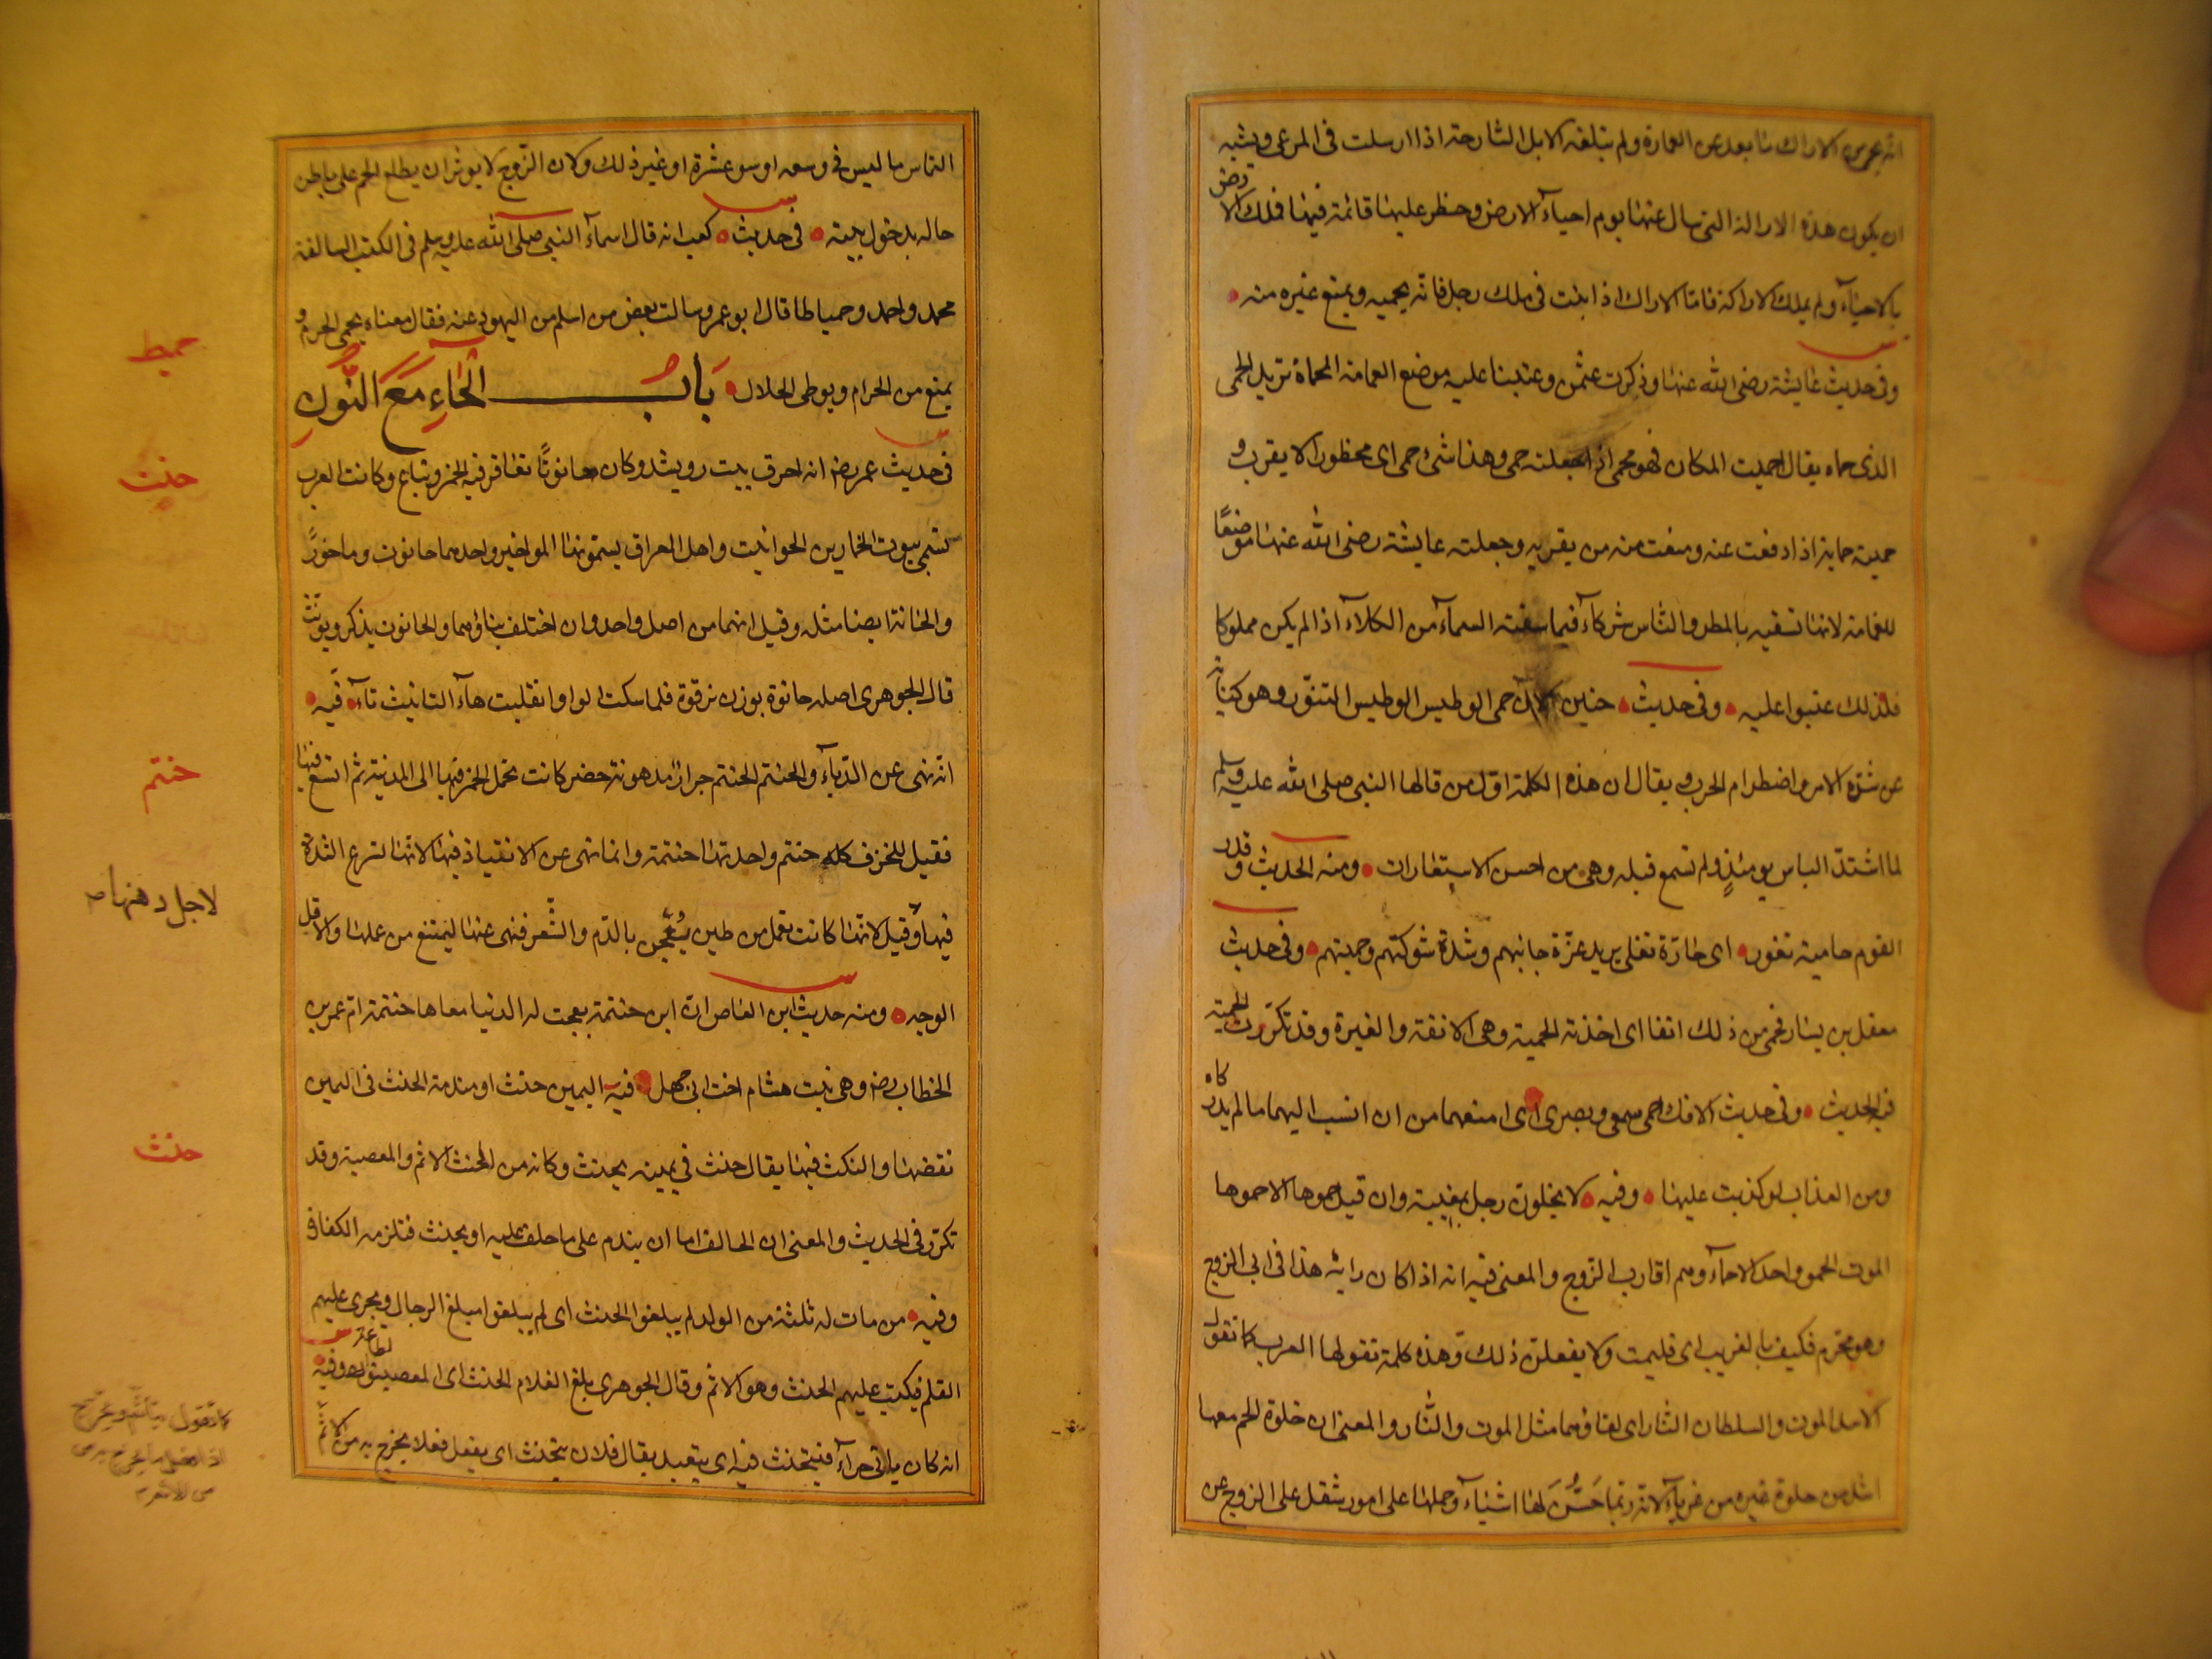 انه يحمى من الاراك ما بعد عن العمارة ولم تبلغه الابل السارحة اذا ارسلت فى المرعى ويشبه
ان يكون هذه الاراكة التى سال عنها يوم احياء الارض وحظر عليها قائمة فيها فملك الارض
بالاحياء ولم يملك الاراكة فاما الاراك اذا نبت فى ملك رجل فانه يحميه ويمنع غيره منه
وفى حديث عايشة رضى الله عنها وذكرت عثمن وعتبنا عليه موضع الغمامة المحماة تريد الحمى
الذى حماه يقال احميت المكان فهو محمى اذا جعلته حمى وهذا شئ حمى اى محظور لا يقرب و
حميته حماية اذا دفعت عنه ومنعت منه من يقربه وجعلته عايشة رضى الله عنها موضعا
للغمامة لانها تسقيه بالمطر والناس شركاء فيما سقته السماء من الكلاء اذا لم يكن مملوكا
فلذلك عتبوا عليه وفى حديث حنين الان حمى الوطيس الوطيس التنور وهو كناية
عن شدة الامر واضطرام الحرب ويقال ان هذه الكلمة اول من قالها النبى صلى الله عليه وسلم
لما اشتد الباس يومئذ ولم تسمع قبله وهى من احسن الاستعارات ومنه الحديث وقدر
القوم حامية تفور اى حارة تغلى يريد عزة جانبهم وشدة شوكتهم وحميتهم وفى حديث
معقل بن يسار فحمى من ذلك انفا اى اخذته الحمية وهى الانفة والغيرة وقد تكررت الحمية
فى الحديث وفى حديث الافك احمى سمعى وبصرى اى امنعهما من ان انسب اليهما ما لم يدركاه
ومن العذاب لو كذبت عليهما وفيه لا يخلون رجل بمغيبة وان قيل حموها الا حموها
الموت الحمو واحد الاحماء وهم اقارب الزوج والمعنى فيه انه اذا كان رايه هذا فى ابى الزوج
وهو محرم فكيف بالغريب اى فليمت ولا يفعلن ذلك وهذه كلمة تقولها العرب كما تقول
الاسد الموت والسلطان النار اى لقاؤهما مثل الموت والنار والمعنى ان خلوة الحم معها
اشد من خلوة غيره من غرباء لانه ربما حسن لها اشياء وحملها على امور تثقل على الزوج عن
التماس ما ليس فى وسعه او سوء عشرة او غير ذلك ولان الزوج لا يوثر ان يطلع الحم على باطن
حاله بدخول بيته فى حديث كعب انه قال اسماء النبى صلى الله عليه وسلم فى الكتب السالفة
محمد واحمد وحمياطا قال ابو عمرو سالت بعض من اسلم من اليهود عنه فقال معناه يحمى الحرم و
يمنع من الحرام ويوطى الحلال باب الحاء مع النون
فى حديث عمر رضـ انه احرق بيت رويشد وكان حانوتا تعاقر فيه الخمر وتباع وكانت العرب
تسمى بيوت الخمارين الحوانيت واهل العراق يسمونها المواخير واحدها حانوت وماخور
والحانة ايضا مثله وقيل انهما من اصل واحد وان اختلف بناؤهما والحانوت يذكر ويونث
قال الجوهرى اصله حانوة بوزن ترقوة فلما سكنت الواو انقلبت هاء التانيث تاء فيه
انه نهى عن الدباء والحنتم الحنتم جرار مدهونة خضر كانت تحمل الخمر فيها الى المدينة ثم اتسع فيها
فقيل للخزف كله حنتم واحدتها حنتمة وانما نهى عن الانتباذ فيها لانها تسرع الشدة
فيها وقيل لانها كانت تعمل من طين يعجن بالدم والشعر فنهى عنها ليمتنع من عملها والاول
الوجه ومنه حديث ابن العاص ان ابن حنتمة بعجت له الدنيا معاها حنتمة ام عمر بن
الخطاب رضـ وهى بنت هشام اخت ابى جهل فيه اليمين حنث او مندمة الحنث فى اليمين
نقضها والنكث فيها يقال حنث فى يمينه يحنث وكانه من الحنث الاثم والمعصية وقد
تكرر فى الحديث والمعنى ان الحالف اما ان يندم على ما حلف عليه او يحنث فتلزمه الكفارة
وفيه من مات له ثلثة من الولد لم يبلغوا الحنث اى لم يبلغوا مبلغ الرجال ويجرى عليهم
القلم فيكتب عليهم الحنث وهو الاثم وقال الجوهرى بلغ الغلام الحنث اى المعصية والطاعة وفيه
انه كان ياتى حراء فيتحنث فيه اى يتعبد يقال فلان يتحنث اى يفعل فعلا يخرج به من الاثم
حميط
حنت
حنتم
لاجل دهنها صـ
حنث
كما تقول يتاثم ويتحرج
اذا فعل ما يخرج به من